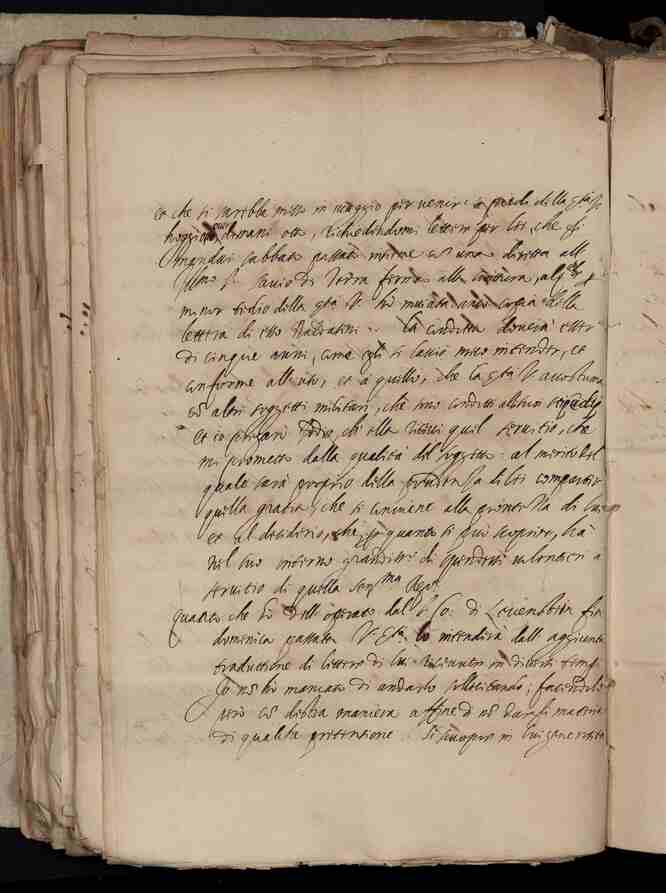 et che si sarebbe messo in viaggio per venire à piedi della Ser.tà
hoggi dimani otto, richiedendomi lettere per lei, che gli
mandai sabbato passato insieme con una diretta all
Ill.mo S.r Savio di Terra ferma alla scrittura, al qual per
minor tedio della Ser.tà V. hò inviata anco copia della
lettera di esso. La condotta doverà esser
di cinque anni, come egli si lasciò meco intender, et
conforme all'uso, et à quello, che la Ser.tà V. accostuma
con altri soggetti militari, che sono condotti al suo stipendio
et io pregarò Iddio, che ella ritrovi quel servitio, che
mi prometto dalla qualità del soggetto: al merito del
quale sarà proprio della prudenza di lei compartir
quella gratia, che si conviene alla prontezza di
et al desiderio, che per quanto si può scoprire, hà
nel suo interno grandissimo di spendersi volontieri a
servitio di quella Ser.ma Rep.ca
Quanto che hò dell' operato dal S.r Co. di Levenstein fin
dominica passata V. Ser.tà lo intenderà dall' aggiunta
traduttione di lettere di lui in diversi tempi
Io non hò mancato di andarlo sollecitando; facendolo
però con destra maniera a fine di non darli materia
di qualche pretensione. Si scuopre in lui generosità